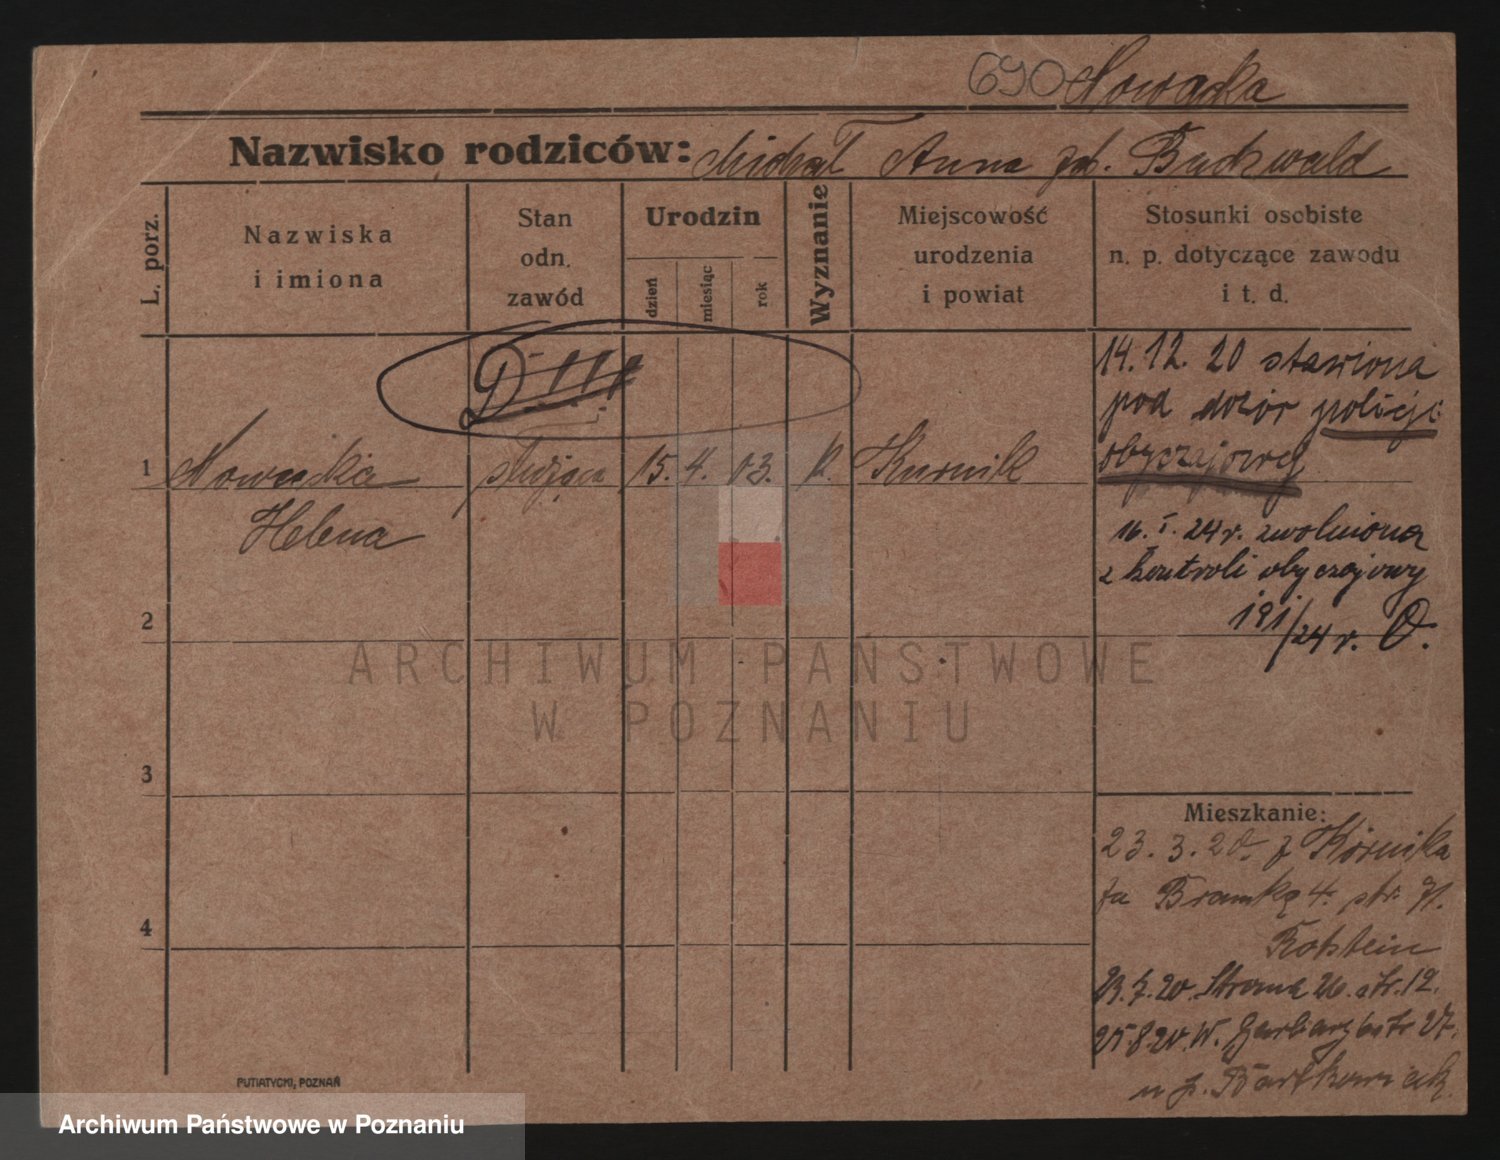 690 Nowacka
Nazwisko rodziców: Michał Anna zd. Buchwald
L. porz.
Nazwiska
i imiona
Stan
odn.
zawód
Urodzin
dzień
miesiąc
rok
Wyznanie
Miejscowość
urodzenia
i powiat
Stosunki osobiste
n. p. dotyczące zawodu
i t. d.
D III
14.12.20 stawiona
pod dozór policji
obyczajowej
1 Nowacka służąca 15. 4. 03. k. Kurnik
Helena
16. I. 24 r. zwolniona
z kontroli obyczajowy
191/24 r.
2
3
4
Mieszkanie:
23. 3. 20. z Kórnika
za Bramką 4. str.
23.7.20. Stroma 26. str. 12.
25.8.20. W. Garbary str 27.
u p. Bartkowiak
PUTIATYCKI, POZNAŃ
ARCHIWUM PAŃSTWOWE
W POZNANIU
Archiwum Państwowe w Poznaniu